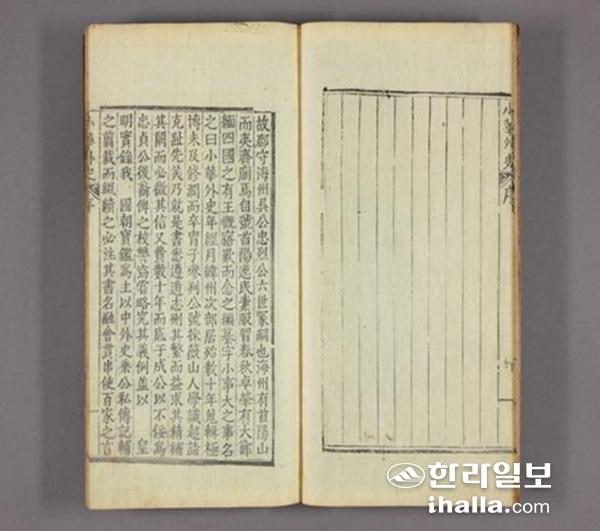 故郡守海州吳公忠烈公六世冢嗣也海州有首陽山
而夷齊廟焉自號首陽逸民素服習春秋卓犖有大節
緬四國之有王慨寤歎而念之編摹字小事大之事名
之曰小華外史年經月緯州次部居殆數十年蒐輯極
博未及修潤而卒胄子參判公號採薇山人學識超詣
克趾先美乃就是書悉遵遺志刪其繁而益求其精補
其闕而必徵其信又費數十年而底于成公以不佞爲
忠貞公後裔俾之校讐窃嘗略究其義例盖以　皇
明實錄我　國朝寶鑑爲主以中外史乘公私傳記輔
之剪裁而綴續之必注其書名融會貫串使百家之言
小華外史 序 一
小華外史 序
한라일보
ihalla.com